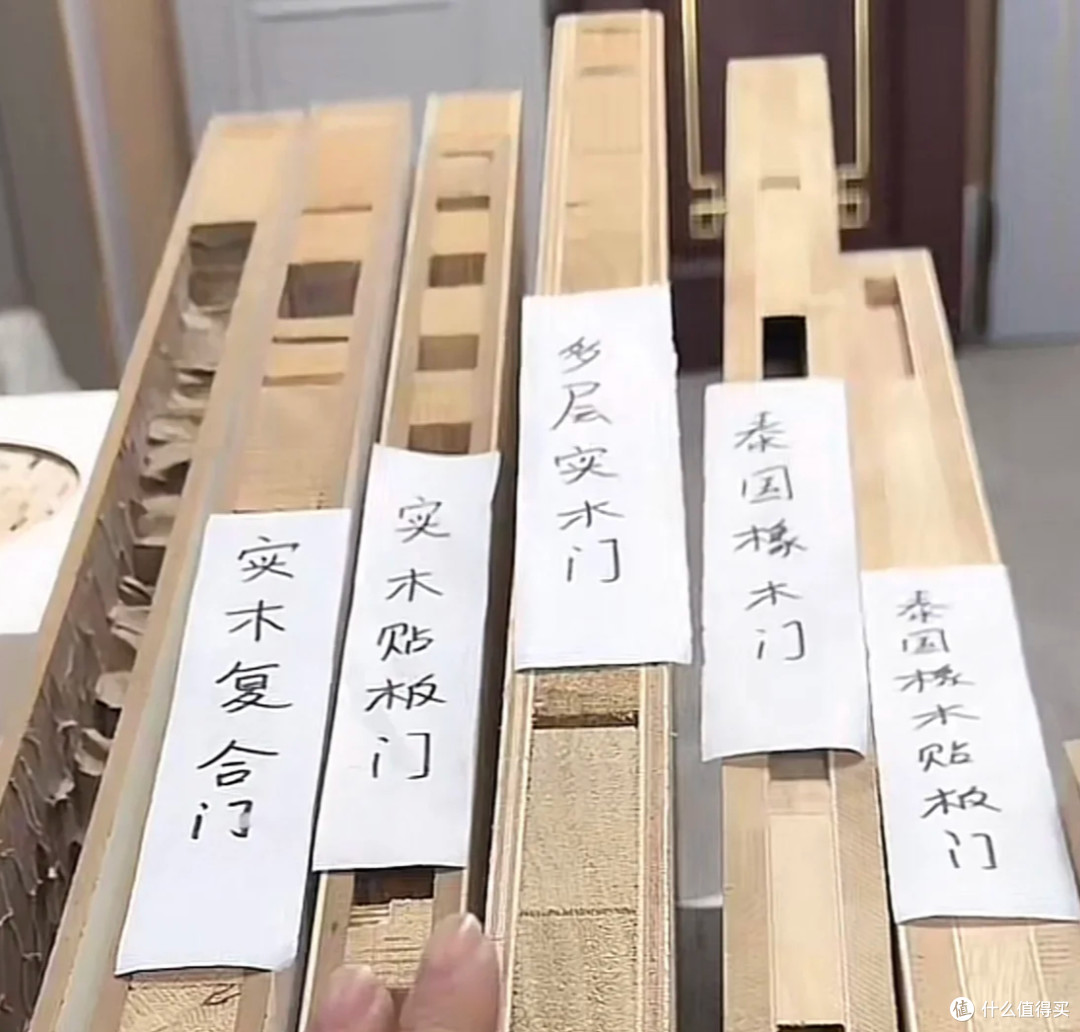 实木复合门
实木贴板门
多层实木门
泰国橡木门
泰国橡木贴板门
值 什么值得买